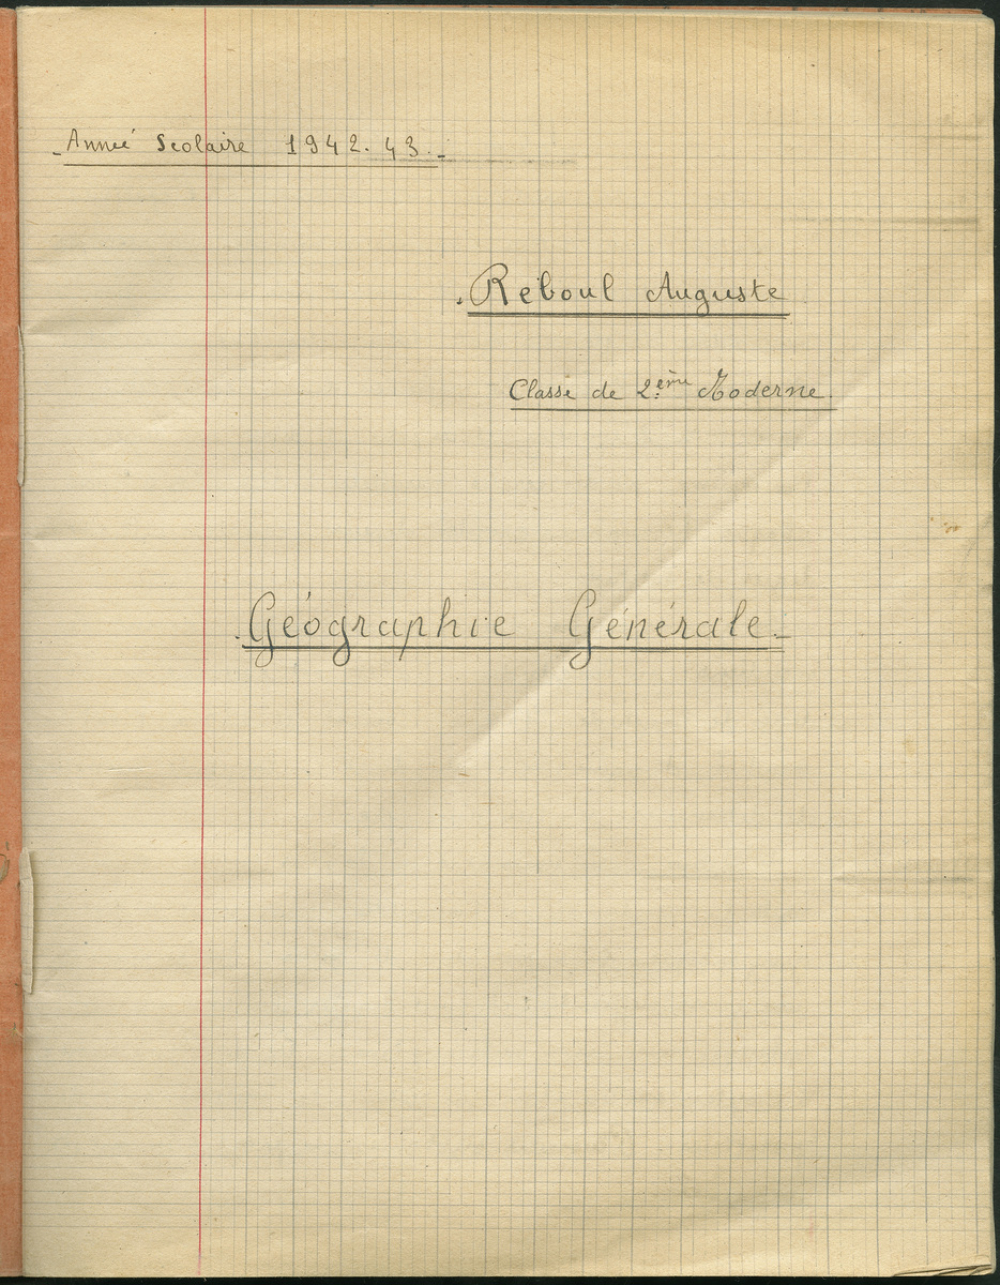 Année Scolaire 1942-43.
Reboul Auguste
Classe de 2ème Moderne.
Géographie Générale.